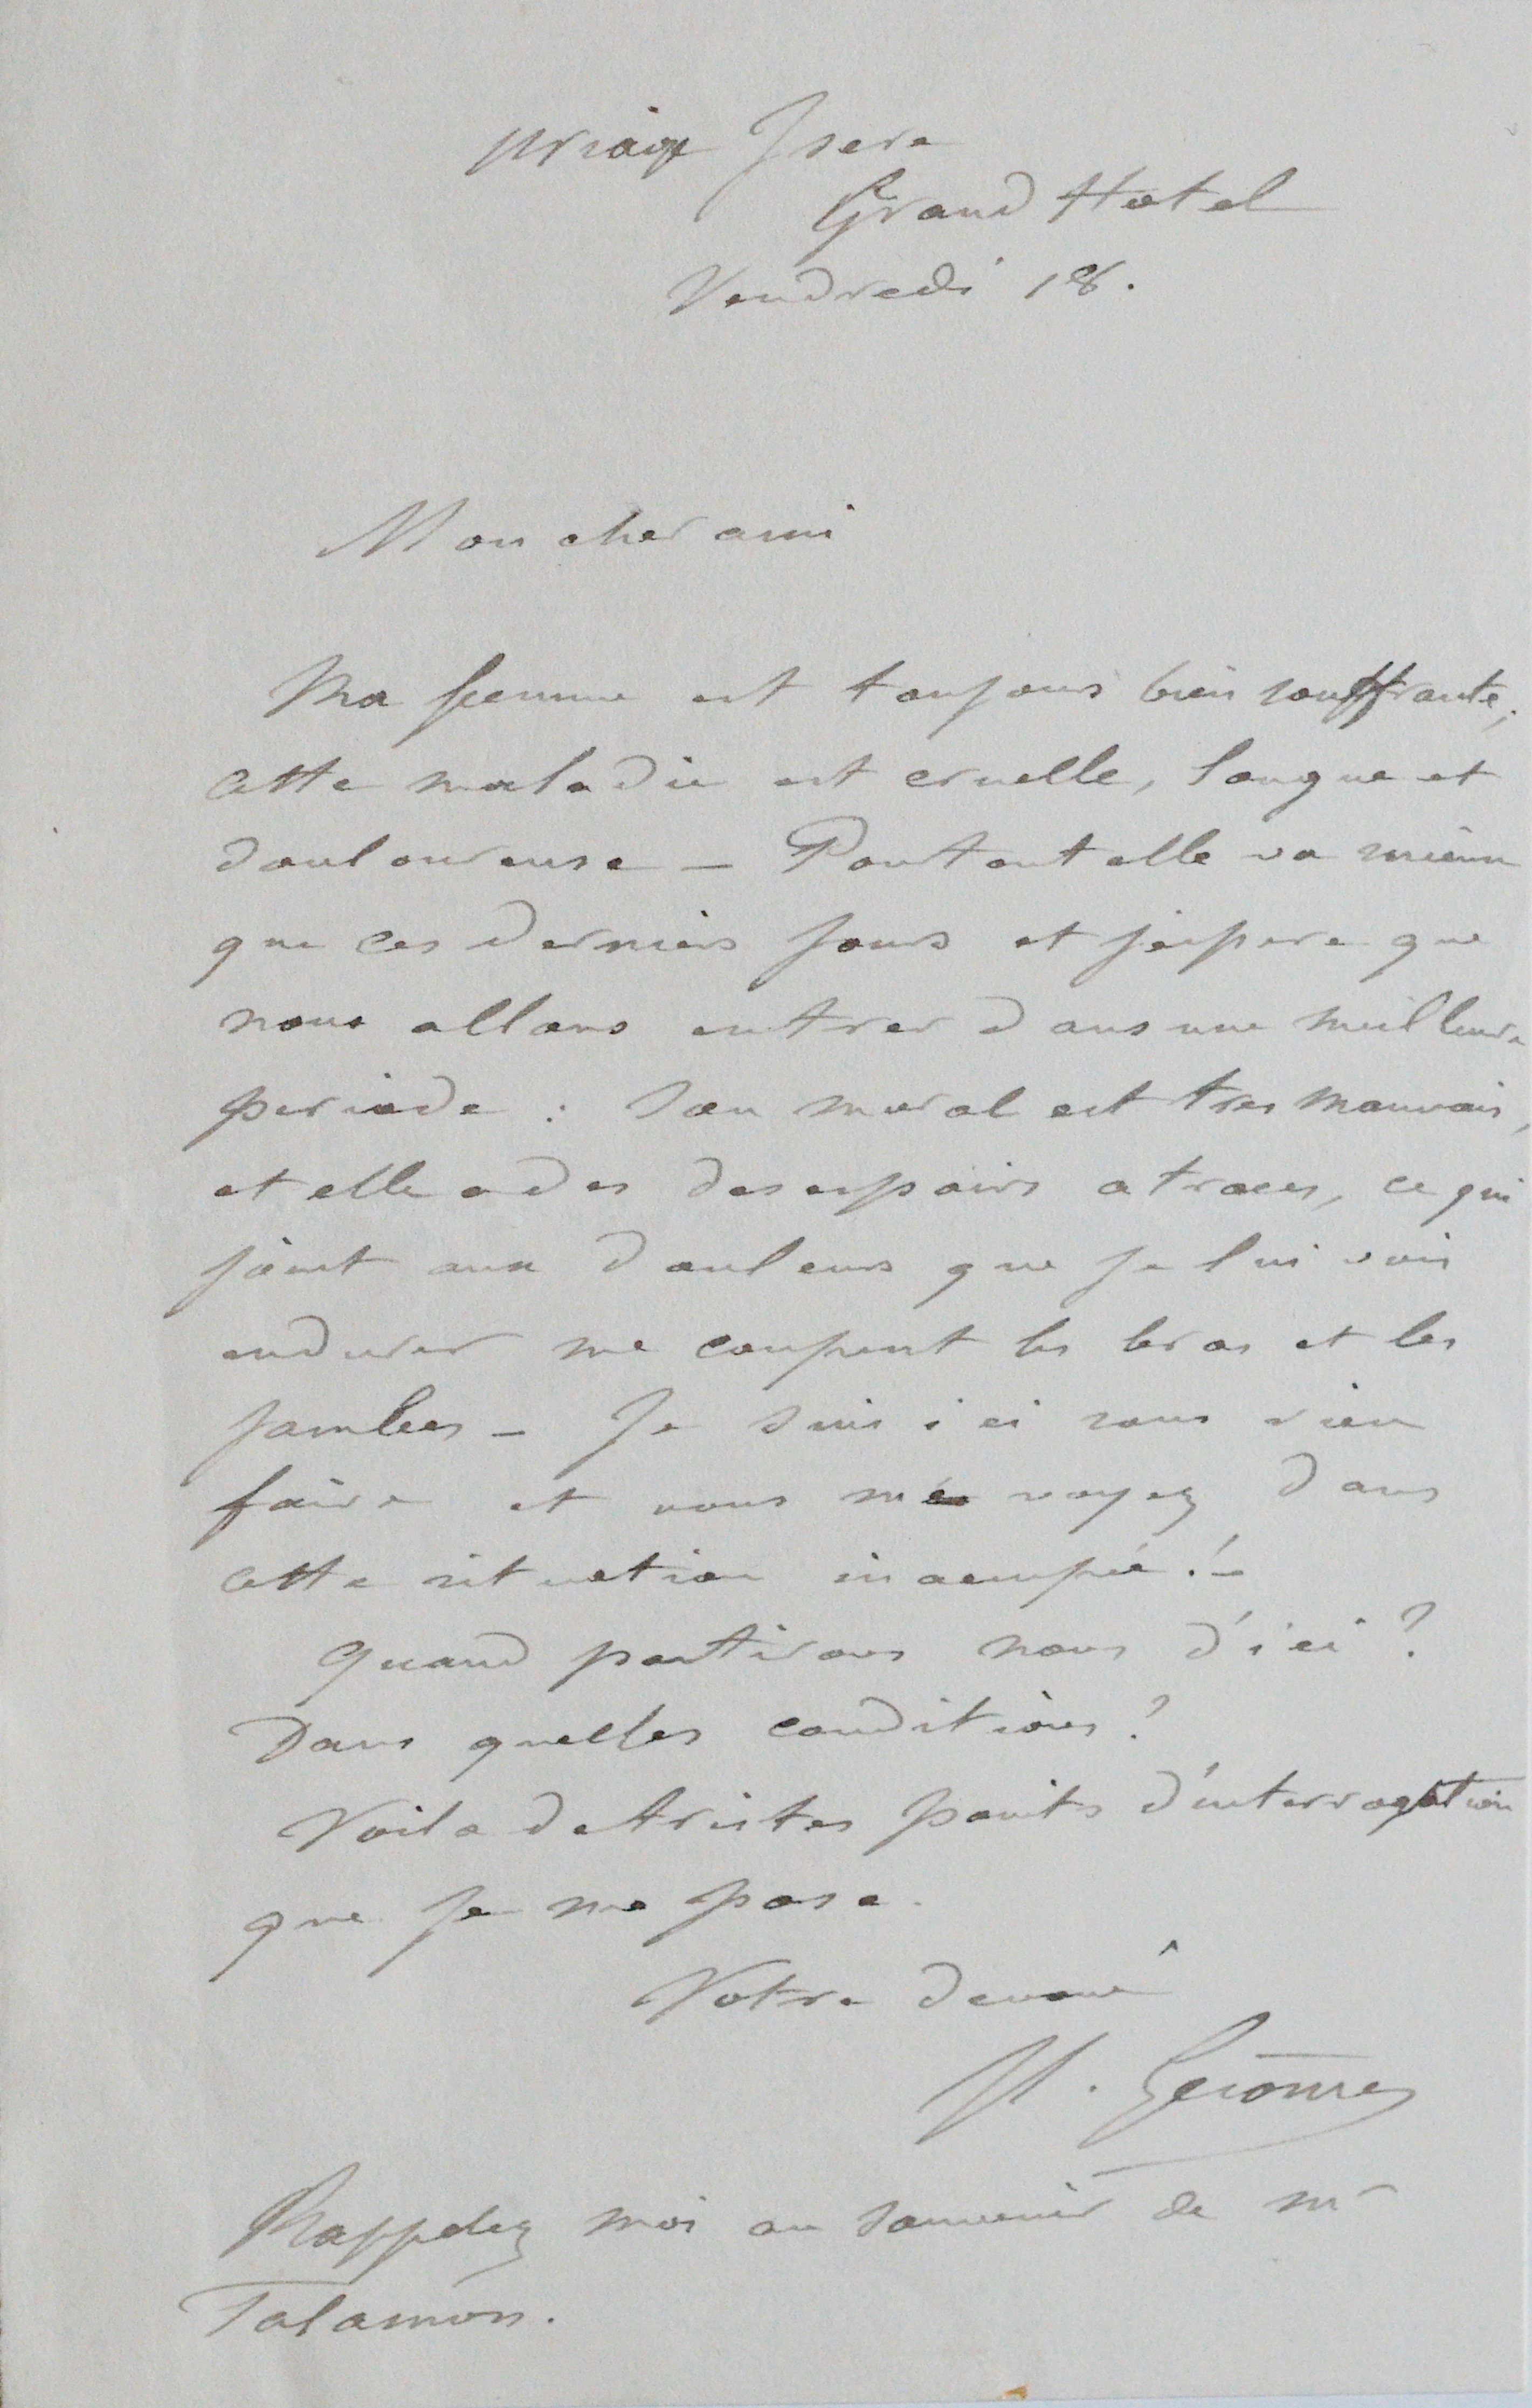 Uriage Isere
Grand Hotel
Vendredi 18.
Mon cher ami
Ma femme est toujours bien souffrante;
cette maladie est cruelle, longue et
douloureuse – Pourtant elle va mieux
que ces derniers jours et j'espere que
nous allons entrer dans une meilleure
periode : Son moral est tres mauvais,
et elle a des desespoirs atroces, ce qui
joint aux douleurs que je lui vois
endurer me coupent les bras et les
jambes – Je suis ici sans rien
faire et vous me voyez dans
cette situation inoccupé ! –
Quand partirons nous d'ici ?
Dans quelles conditions ?
Voila de tristes points d'interrogation
que je me pose.
Votre devoué
Gerome
Rappelez moi au souvenir de Mr
Talamon.